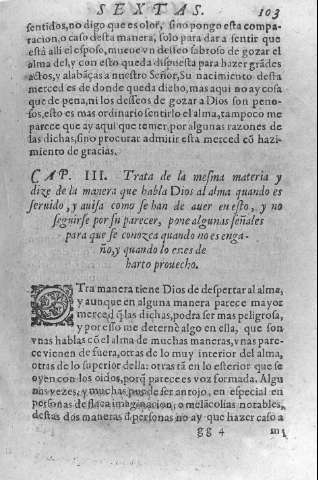 SEXTAS. 103
sentidos, no digo que es olor, sino pongo esta compa-
racion, o caso desta manera, solo para dar a sentir que
està alli el esposo, mueue vn desseo sabroso de gozar el
alma del, y con esto queda dispuesta para hazer grãdes
actos, y alabãças a nuestro Señor, Su nacimiento desta
merced es de donde queda dicho, mas aqui no ay cosa
que de pena, ni los desseos de gozar a Dios son peno-
sos, esto es mas ordinario sentirlo el alma, tampoco me
parece que ay aqui que temer, por algunas razones de
las dichas, sino procurar admitir esta merced cõ hazi-
miento de gracias.
CAP. III. Trata de la mesma materia y
dize de la manera que habla Dios al alma quando es
seruido, y auisa como se han de auer en esto, y no
seguirse por su parecer, pone algunas señales
para que se conozca quando no es enga-
ño, y quando lo es: es de
harto prouecho.
OTra manera tiene Dios de despertar al alma,
y aunque en alguna manera parece mayor
merced q̃ las dichas, podra ser mas peligrosa,
y por esso me deternè algo en ella, que son
vnas hablas cõ el alma de muchas maneras, vnas pare-
ce vienen de fuera, otras de lo muy interior del alma,
otras de lo superior della: otras tã en lo esterior que se
oyen con los oidos, porq̃ parece es voz formada. Algu
nas vezes, y muchas puede ser antojo, en especial en
personas de flaca imaginacion, o melãcolias notables,
destas dos maneras d̃ personas no ay que hazer caso a
gg 4 mi